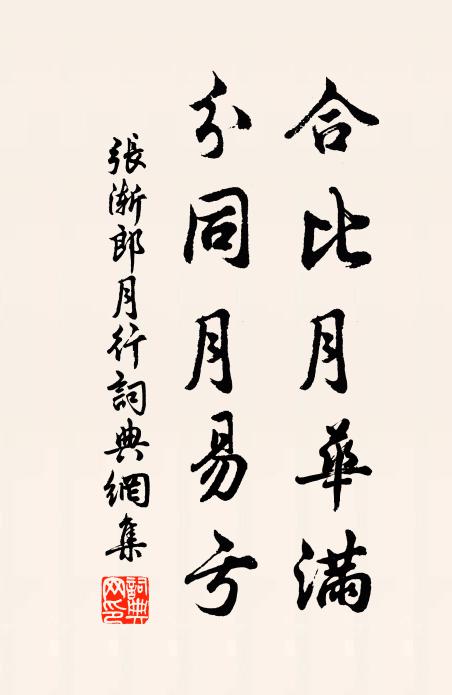 合比月華滿
分同月易亏
張漸郎月行詞典網集
詞典網印